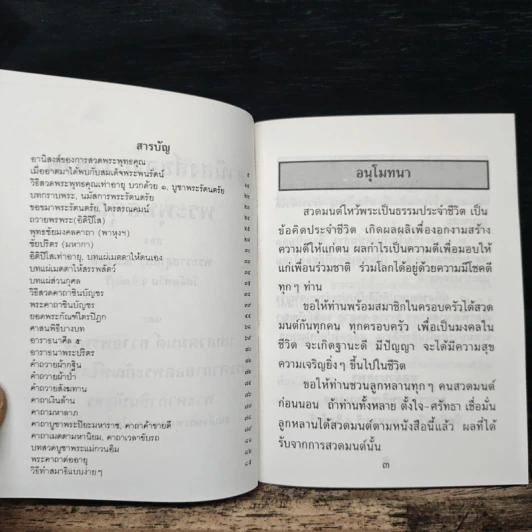 สารบัญ
อานิสงส์ของการสวดพระพุทธคุณ
เมื่ออาตมาได้พบกับสมเด็จพระพนรัตน์
วิธีสวดพระพุทธคุณเท่าอายุ บวกด้วย ๑, บูชาพระรัตนตรัย
บทกราบพระ, นมัสการพระรัตนตรัย
ขอขมาพระรัตนตรัย, ไตรสรณคมน์
ถวายพรพระ(อิติปิโส)
พุทธชัยมงคลคาถา (พาหุงฯ)
ชัยปริตร (มหากา)
อิติปิโสเท่าอายุ, บทแผ่เมตตาให้ตนเอง
บทแผ่เมตตาให้สรรพสัตว์
บทแผ่ส่วนกุศล
วิธีสวดคาถาชินบัญชร
พระคาถาชินบัญชร
ยอดพระกัณฑ์ไตรปิฎก
ศาสนพิธีบางบท
อาราธนาศีล ๕
อาราธนาพระปริตร
คำถวายผ้ากฐิน
คำถวายผ้าป่า
คำถวายสังฆทาน
คาถาเงินล้าน
คาถามหาลาภ
คาถาบูชาพระปิยะมหาราช, คาถาค้าขายดี
คาถาเมตตามหานิยม, คาถาเวลาขับรถ
บทสวดบูชาพระแม่กวนอิม
พระคาถาต่ออายุ
วิธีทำสมาธิแบบง่ายๆ
อนุโมทนา
สวดมนต์ไหว้พระเป็นธรรมประจำชีวิต เป็น
ข้อคิดประจำชีวิต เกิดผลผลิเพื่องอกงามสร้าง
ความดีให้แก่ตน ผลกำไรเป็นความดีเพื่อมอบให้
แก่เพื่อนร่วมชาติ ร่วมโลกได้อยู่ด้วยความมีโชคดี
ทุกๆ ท่าน
ขอให้ท่านพร้อมสมาชิกในครอบครัวได้สวด
มนต์กันทุกคน ทุกครอบครัว เพื่อเป็นมงคลใน
ชีวิต จะเกิดฐานะดี มีปัญญา จะได้มีความสุข
ความเจริญยิ่งๆ ขึ้นไปในชีวิต
ขอให้ท่านชวนลูกหลานทุกๆ คนสวดมนต์
ก่อนนอน ถ้าท่านทั้งหลาย ตั้งใจ-ศรัทธา เชื่อมั่น
ลูกหลานได้สวดมนต์ตามหนังสือนี้แล้ว ผลที่ได้
รับจากการสวดมนต์นั้น
๓